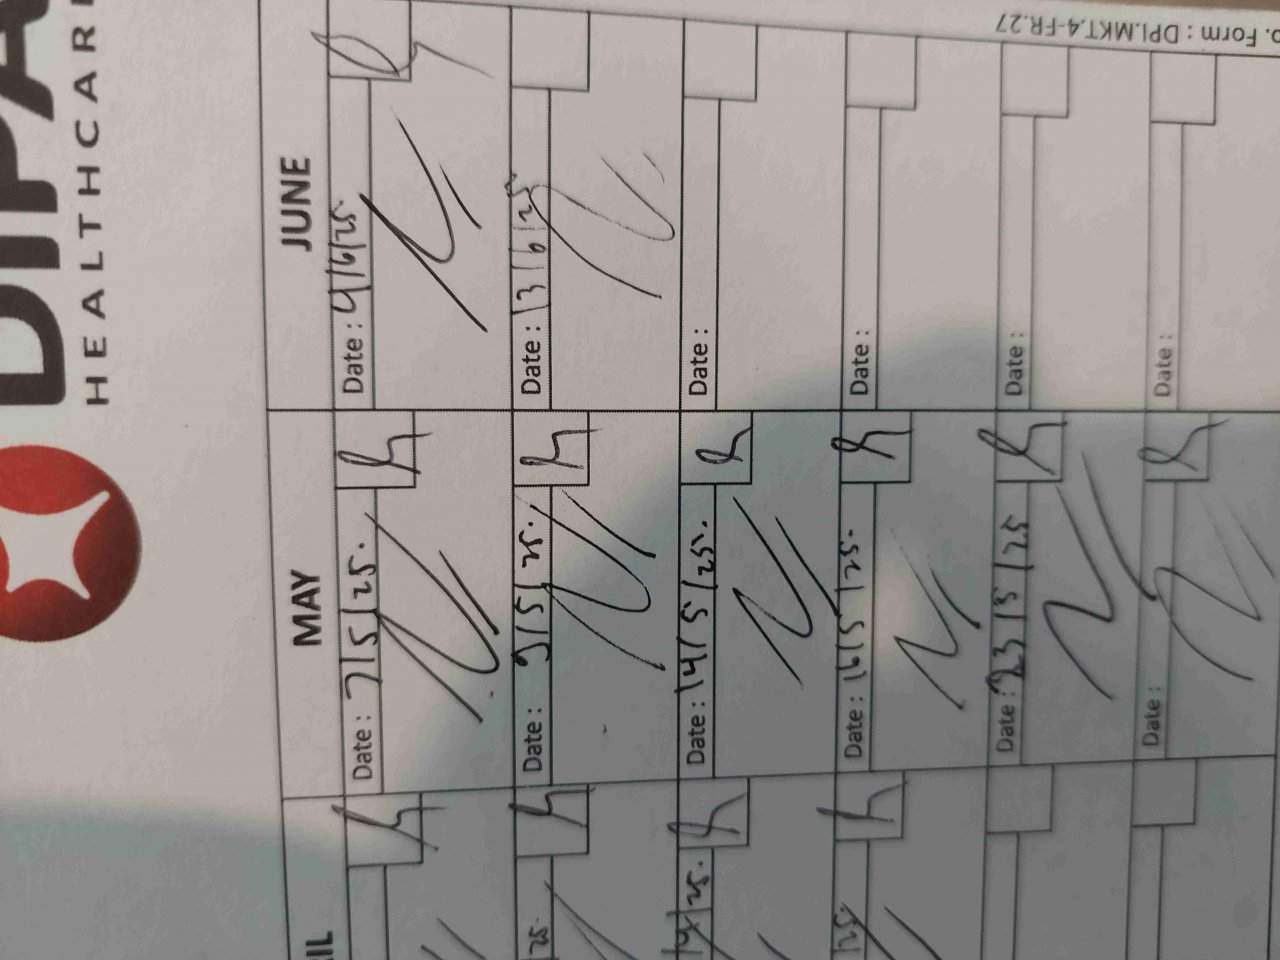 DIPA
HEALTHCAR
IL
MAY
JUNE
25.
25.
Date : 7/5/25.
Date : 9/5/25.
Date : 14/5/25.
Date : 16/5/25.
Date : 23/5/25
Date :
Date : 4/6/25.
Date : 13/6/25
Date :
Date :
Date :
Date :
. Form : DPI.MKT.4-FR.27